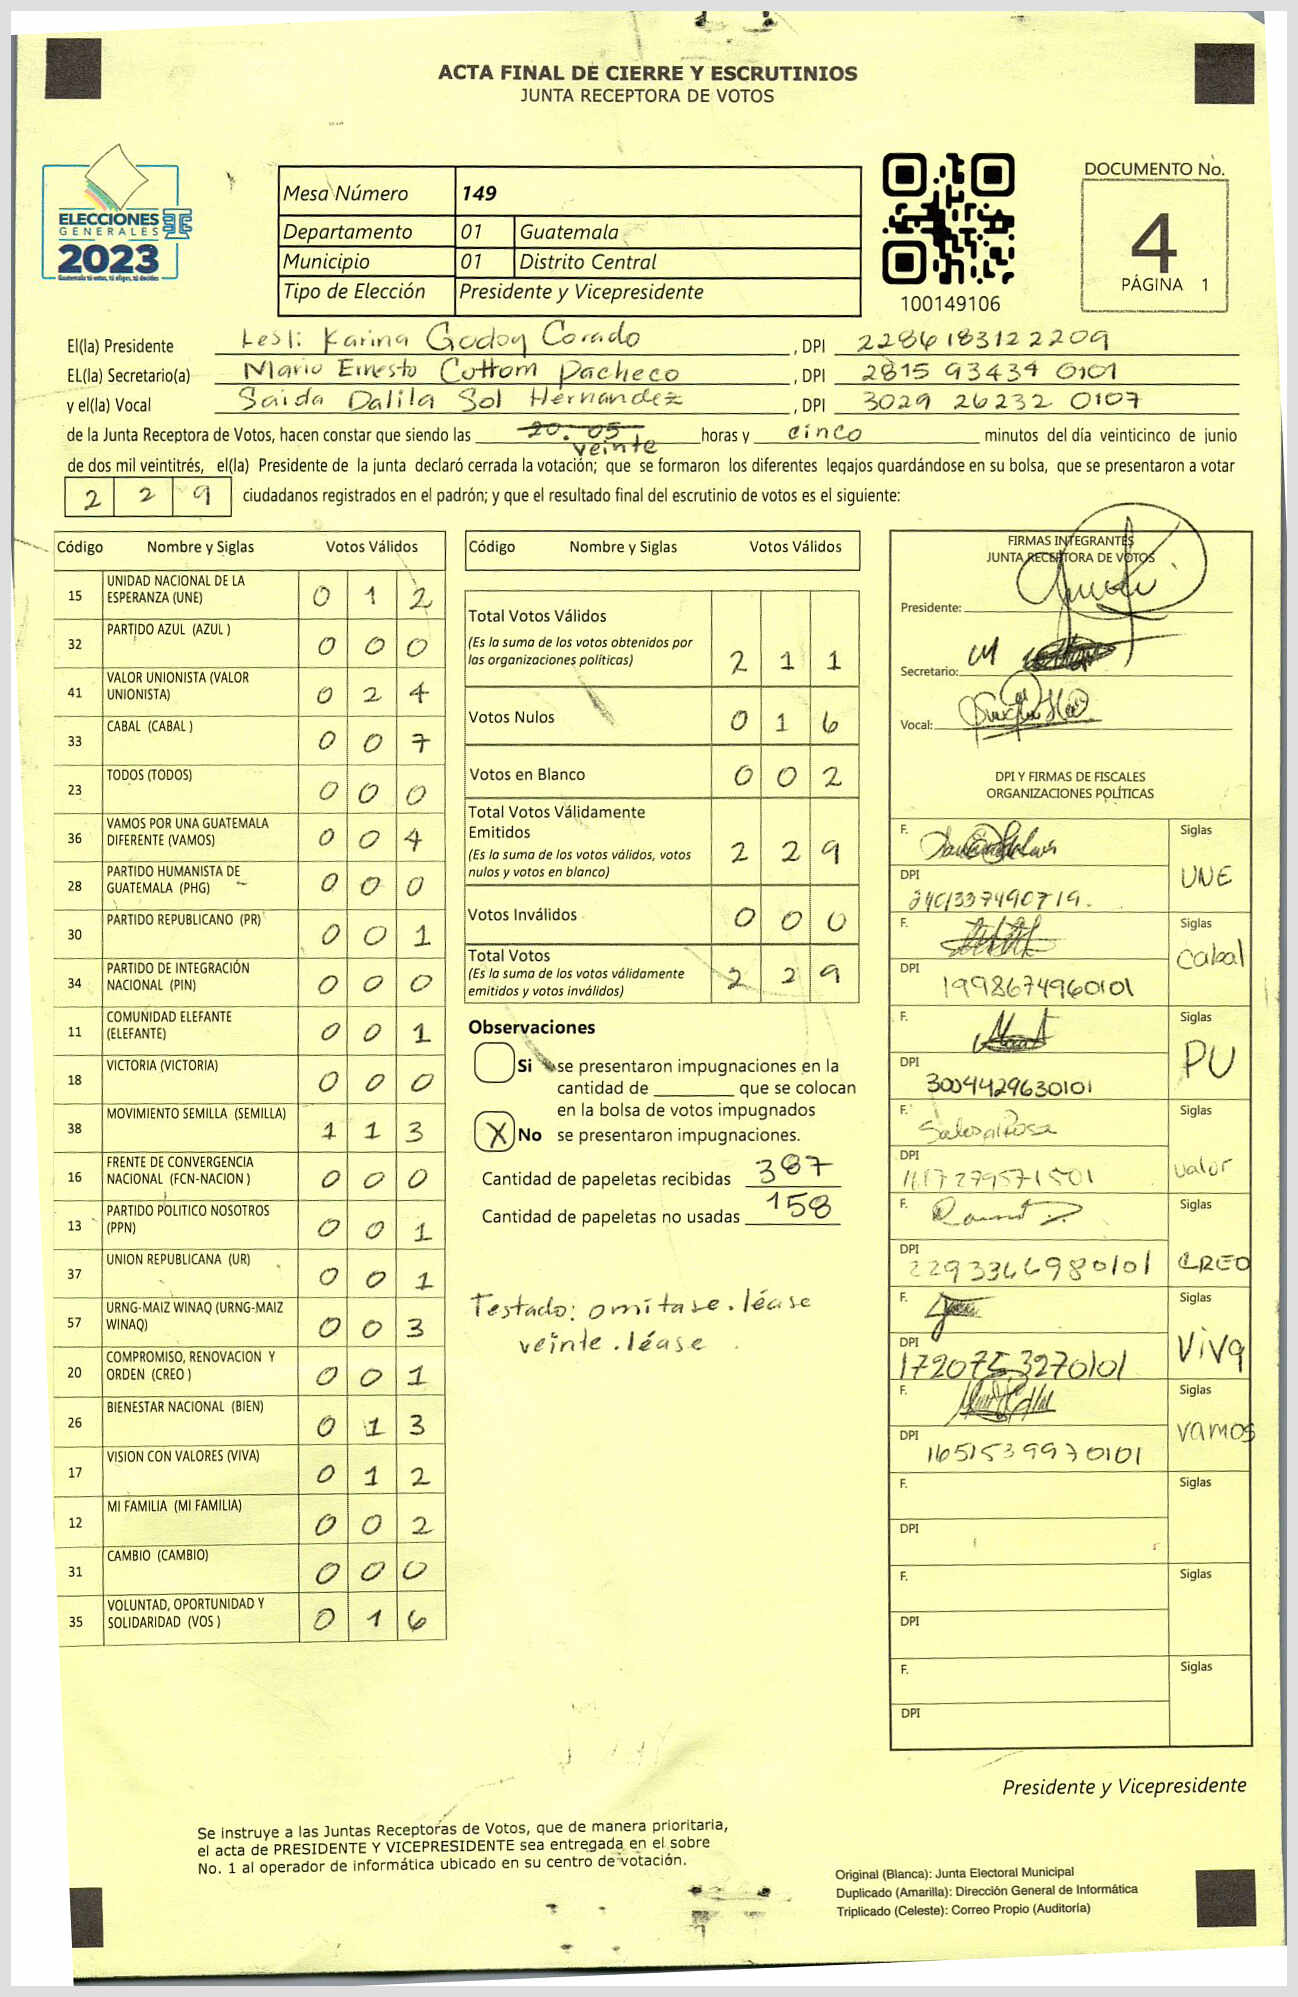 ACTA FINAL DE CIERRE Y ESCRUTINIOS
JUNTA RECEPTORA DE VOTOS
ELECCIONES
GENERALES
2023
Mesa Número 149
Departamento 01 Guatemala
Municipio 01 Distrito Central
Tipo de Elección Presidente y Vicepresidente
100149106
DOCUMENTO No.
4
PÁGINA 1
El(la) Presidente Lesli Karina Godoy Corado , DPI 2286183122209
EL(la) Secretario(a) Mario Ernesto Cottom Pacheco , DPI 2815 93434 0101
y el(la) Vocal Saida Dalila Sol Hernandez , DPI 3029 26232 0107
de la Junta Receptora de Votos, hacen constar que siendo las 20:05 veinte horas y cinco minutos del día veinticinco de junio
de dos mil veintitrés, el(la) Presidente de la junta declaró cerrada la votación; que se formaron los diferentes legajos quardándose en su bolsa, que se presentaron a votar
2 2 9 ciudadanos registrados en el padrón; y que el resultado final del escrutinio de votos es el siguiente:
Código Nombre y Siglas Votos Válidos
15 UNIDAD NACIONAL DE LA ESPERANZA (UNE) 0 1 2
32 PARTIDO AZUL (AZUL ) 0 0 0
41 VALOR UNIONISTA (VALOR UNIONISTA) 0 2 4
33 CABAL (CABAL ) 0 0 7
23 TODOS (TODOS) 0 0 0
36 VAMOS POR UNA GUATEMALA DIFERENTE (VAMOS) 0 0 4
28 PARTIDO HUMANISTA DE GUATEMALA (PHG) 0 0 0
30 PARTIDO REPUBLICANO (PR) 0 0 1
34 PARTIDO DE INTEGRACIÓN NACIONAL (PIN) 0 0 0
11 COMUNIDAD ELEFANTE (ELEFANTE) 0 0 1
18 VICTORIA (VICTORIA) 0 0 0
38 MOVIMIENTO SEMILLA (SEMILLA) 1 1 3
16 FRENTE DE CONVERGENCIA NACIONAL (FCN-NACION ) 0 0 0
13 PARTIDO POLITICO NOSOTROS (PPN) 0 0 1
37 UNION REPUBLICANA (UR) 0 0 1
57 URNG-MAIZ WINAQ (URNG-MAIZ WINAQ) 0 0 3
20 COMPROMISO, RENOVACION Y ORDEN (CREO ) 0 0 1
26 BIENESTAR NACIONAL (BIEN) 0 1 3
17 VISION CON VALORES (VIVA) 0 1 2
12 MI FAMILIA (MI FAMILIA) 0 0 2
31 CAMBIO (CAMBIO) 0 0 0
35 VOLUNTAD, OPORTUNIDAD Y SOLIDARIDAD (VOS ) 0 1 6
Código Nombre y Siglas Votos Válidos
Total Votos Válidos
(Es la suma de los votos obtenidos por
las organizaciones políticas) 2 1 1
Votos Nulos 0 1 6
Votos en Blanco 0 0 2
Total Votos Válidamente
Emitidos
(Es la suma de los votos válidos, votos
nulos y votos en blanco) 2 2 9
Votos Inválidos 0 0 0
Total Votos
(Es la suma de los votos válidamente
emitidos y votos inválidos) 2 2 9
Observaciones
Si se presentaron impugnaciones en la
cantidad de ________ que se colocan
en la bolsa de votos impugnados
X No se presentaron impugnaciones.
Cantidad de papeletas recibidas 387
Cantidad de papeletas no usadas 158
Testado: omitase.léase
veinte.léase
FIRMAS INTEGRANTES
JUNTA RECEPTORA DE VOTOS
Presidente:
Secretario:
Vocal:
DPI Y FIRMAS DE FISCALES
ORGANIZACIONES POLÍTICAS
F. Siglas
UNE
DPI 2401337490719.
F. Siglas
Cabal
DPI 1998674960101
F. Siglas
PU
DPI 3004429630101
F. Siglas
valor
DPI
F. Siglas
CREO
DPI 2293366980101
F. Siglas
ViVa
DPI 1720753270101
F. Siglas
vamos
DPI 1651539970101
F. Siglas
DPI
F. Siglas
DPI
F. Siglas
DPI
Presidente y Vicepresidente
Se instruye a las Juntas Receptoras de Votos, que de manera prioritaria,
el acta de PRESIDENTE Y VICEPRESIDENTE sea entregada en el sobre
No. 1 al operador de informática ubicado en su centro de votación.
Original (Blanca): Junta Electoral Municipal
Duplicado (Amarilla): Dirección General de Informática
Triplicado (Celeste): Correo Propio (Auditoría)